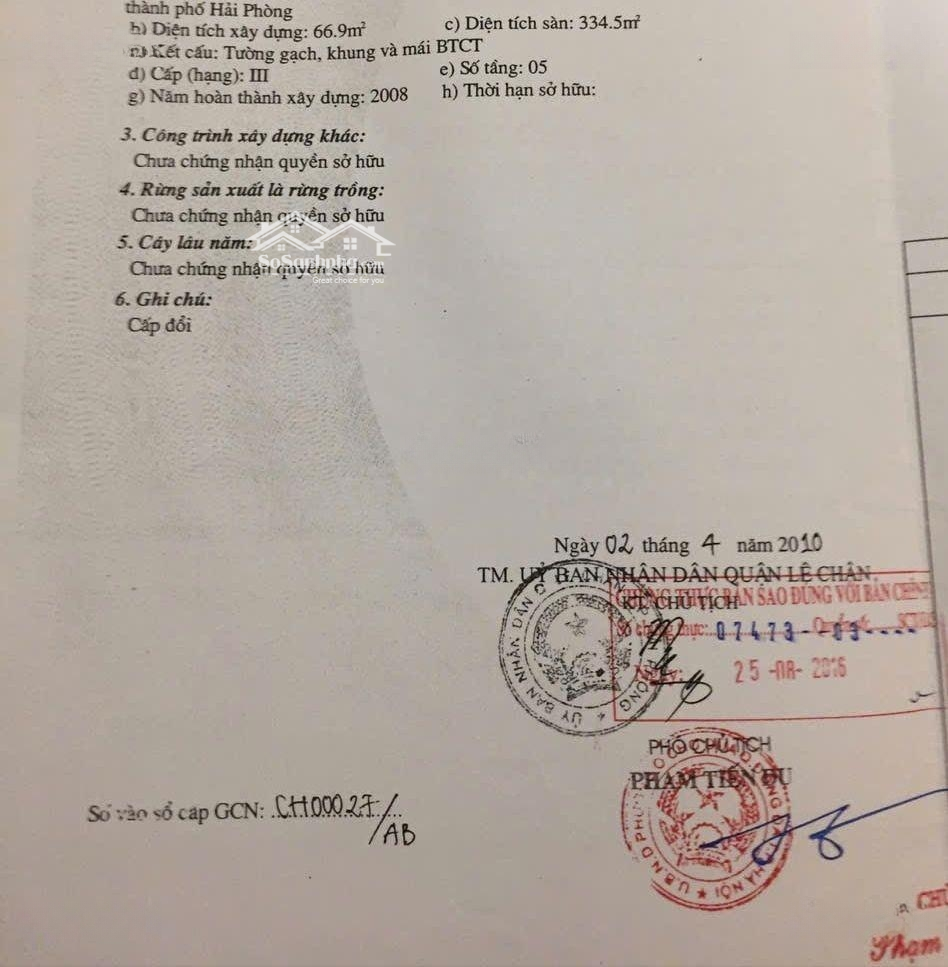 thành phố Hải Phòng
b) Diện tích xây dựng: 66.9m²
c) Diện tích sàn: 334.5m²
Kết cấu: Tường gạch, khung và mái BTCT
d) Cấp (hạng): III
e) Số tầng: 05
g) Năm hoàn thành xây dựng: 2008
h) Thời hạn sở hữu:
3. Công trình xây dựng khác:
Chưa chứng nhận quyền sở hữu
4. Rừng sản xuất là rừng trồng:
Chưa chứng nhận quyền sở hữu
5. Cây lâu năm:
Chưa chứng nhận quyền sở hữu
SoSanhnha
Great choice for you
6. Ghi chú:
Cấp đổi
Ngày 02 tháng 4 năm 2010
TM. UỶ BAN NHÂN DÂN QUẬN LÊ CHÂN
CHỨNG THỰC BẢN SAO ĐÚNG VỚI BẢN CHÍNH
KT. CHỦ TỊCH
Số chứng thực: 07473
Ngày: 25-08-2016
ỦY BAN NHÂN DÂN
PHÓ CHỦ TỊCH
PHẠM TIẾN DU
Số vào sổ cấp GCN: CH00027/AB
U.B.N.D
HÀ NỘI
Phạm